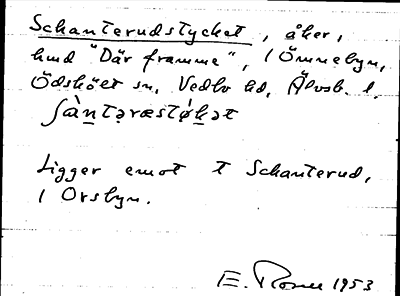 Schanterudstycket, åker,
hmd "Där framme", i Ömmebyn,
Ödsköet sn, Vedbo hd, Älvsb. l.
ʃàn̲təræstø̀k̲ət
Ligger emot t Schanterud,
i Orsbyn.
E. 1953